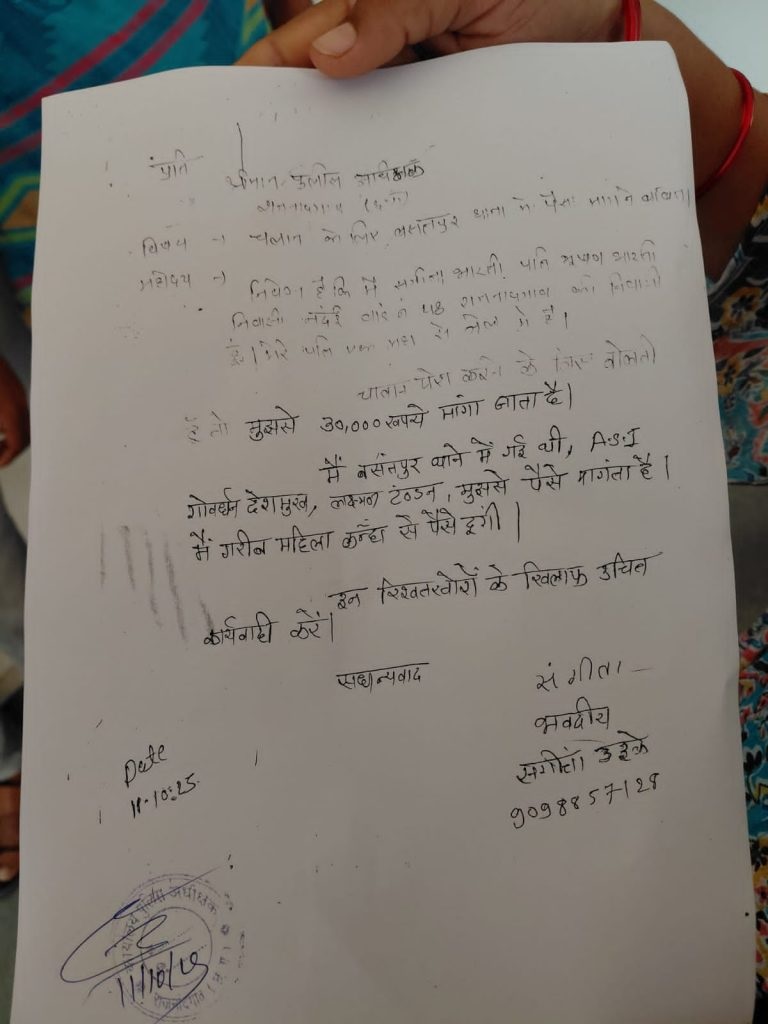 प्रति
श्रीमान पुलिस अधीक्षक
राजनांदगांव (छ.ग)
विषय → चलान के लिए बसंतपुर थाना में पैसा मांगने बाबत।
महोदय → निवेदन है कि मैं संगीता भारती पति भारती
निवासी नंदई वार्ड नं राजनांदगांव की निवासी
हूँ। मेरे पति एक माह से जेल में है।
चालान पेश करने के लिए बोलती
हूँ तो मुझसे 30,000 रूपये मांगा जाता है।
मैं बसंनपुर थाने में गई थी, A.S.I
गोवर्धन देशमुख, लक्ष्मण टंण्डन, मुझसे पैसे मागंता है।
मैं गरीब महिला कहाँ से पैसे दूंगी।
इन रिश्वतखोरों के खिलाफ उचित
कार्यवाही करें।
सधन्यवाद
संगीता
भवदीय
संगीता उइके
9098857128
Date
11.10.25
कार्यालय पुलिस अधीक्षक
राजनांदगांव
11/10/25